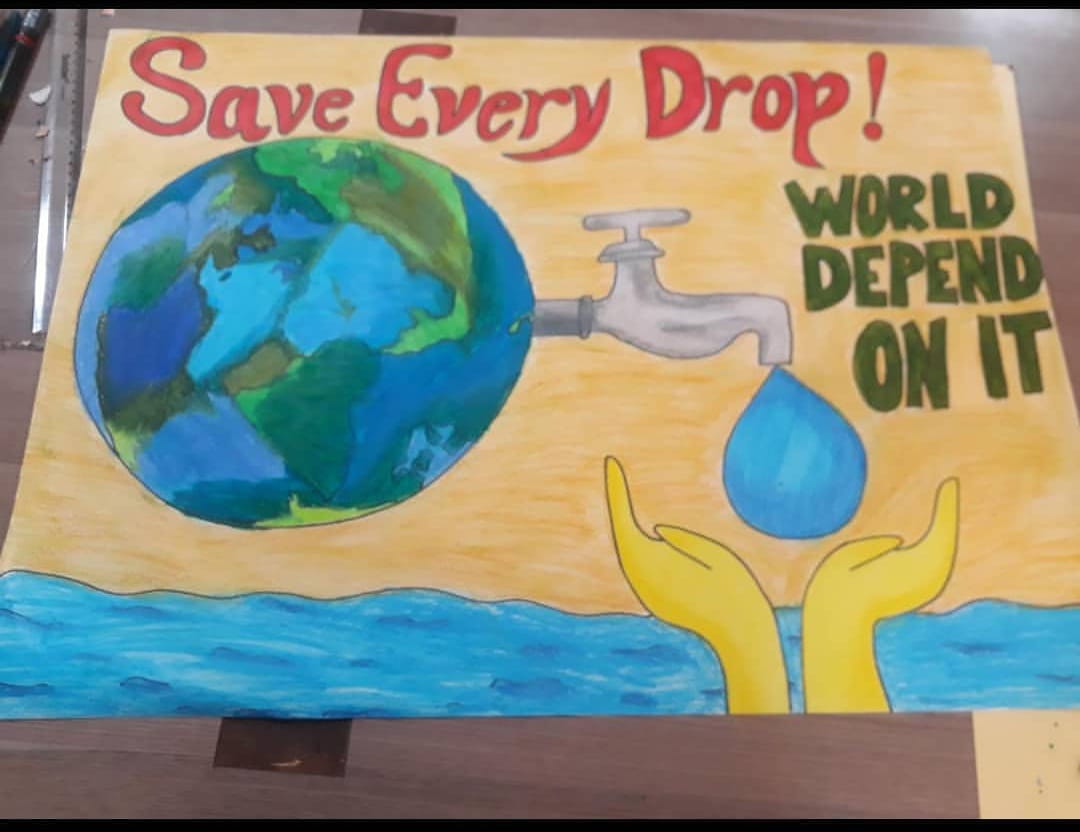 Save Every Drop!
WORLD
DEPEND
ON IT